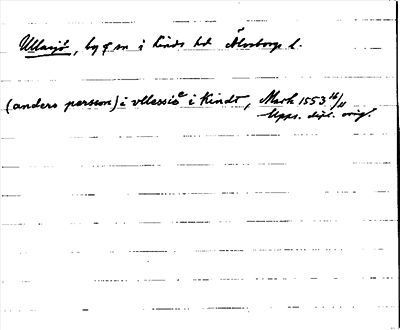 Ullasjö, by i Kinds hd Älvsborgs l.
(anders persson) i vllassiö i Kindt, Mark 1553 16/11
Upps. dipl. orig.